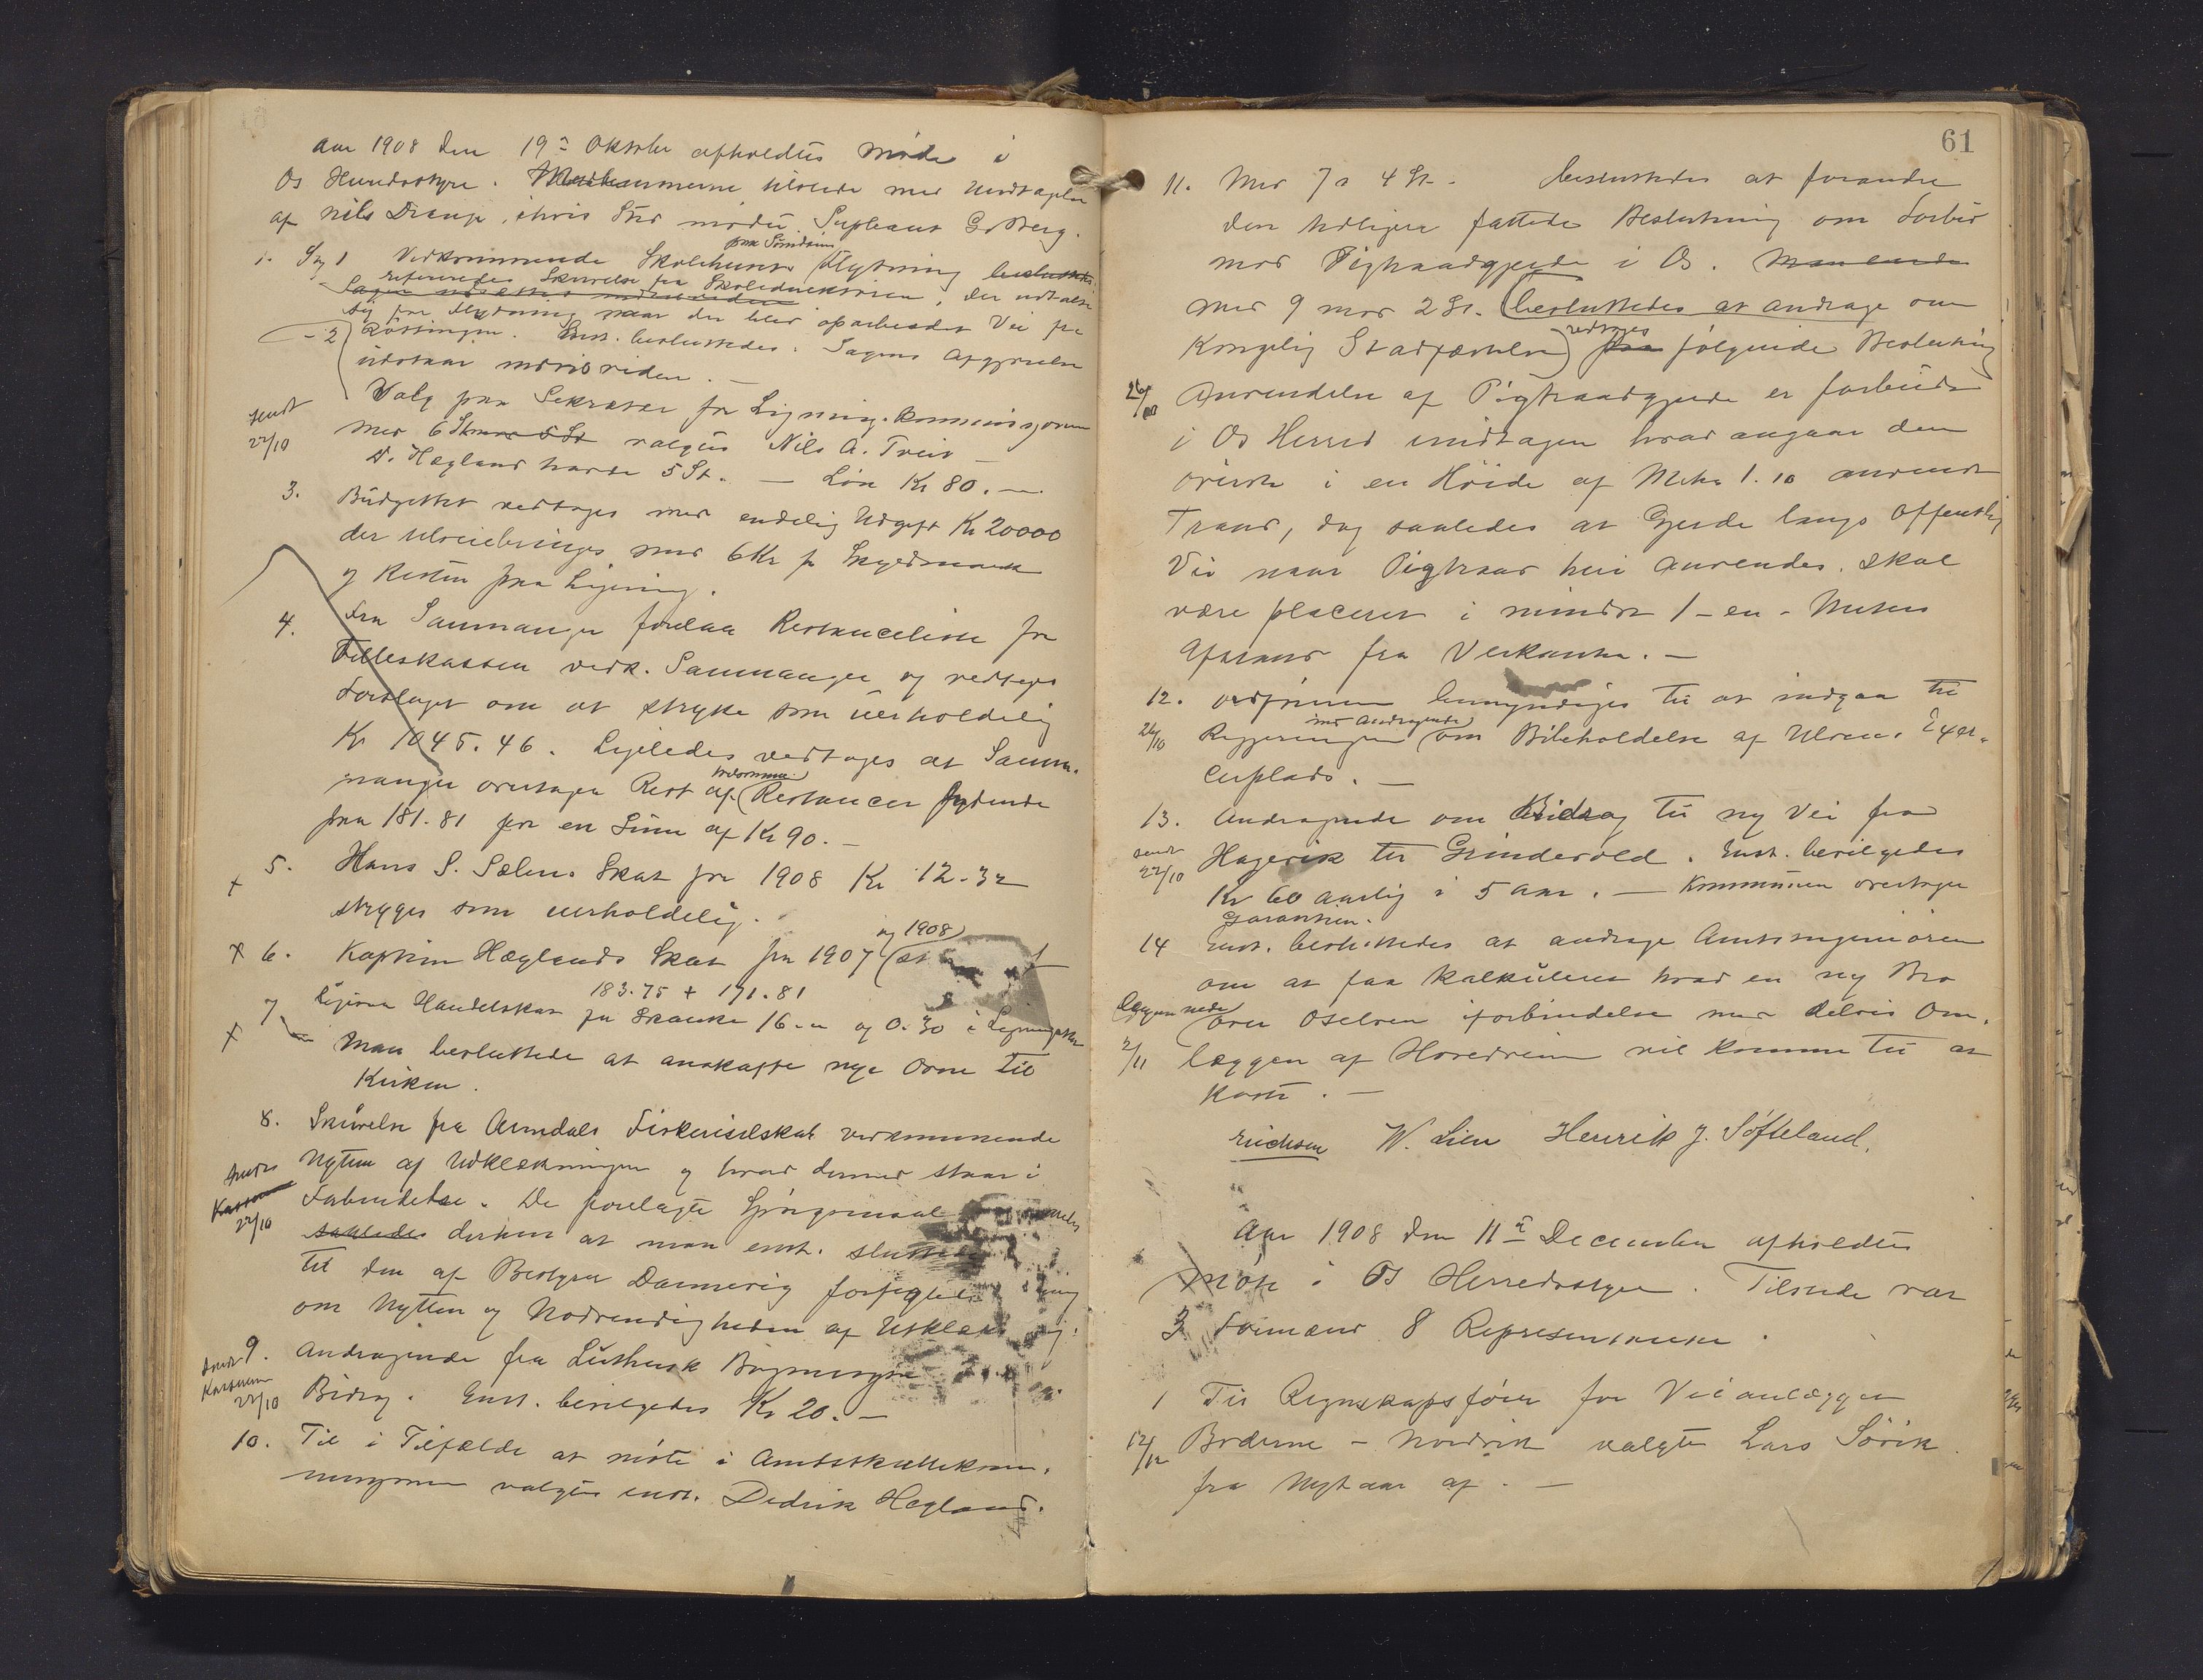 Aar 1908 den 19de Oktober afholdtes Møde i
Os Herredsstyre. Medlemmerne tilstede med Undtagelse
af Nils Drange, ihvis Sted mødte Supleant G. Berg.
1. Sag 1 Vedkommende Skolehusets Flytning besluttedes
paa Søndsiming
refereredes Skrivelse fra Skoledirektøren, der udtalte
sig for Flytning naar der blev oparbeidet Vei fra
Røttingen. Enst. besluttedes. Sagens Afgjørelse
udstaar indtil videre. —
- 2
Valg paa Sekretær for Ligningskommissjonen
sendt
22/10
Med 6 Stemmer valgtes Nils A. Tveit
D. Hegland havde 5 St. — Løn Kr 80. —
3. Budgettet vedtages med endelig Udgift Kr 20000
der tilveiebringes med 6 Kr pr Skyldmark
og Resten paa Ligning.
4. Fra Samnanger forelaa Restanceliste for
Felleskassen vedk. Samnanger og vedtoges
Forslaget om at stryke som uerholdelig
Kr 1045.46. Ligeledes vedtoges at Samn-
anger overtager Rest af Restancer lydende
indkomne
paa 181.81 for en Sum af Kr 90. —
5. Hans S. Sælens Skat for 1908 Kr 12-32
x
stryges som uerholdelig.
x 6. Kaptein Hæglands Skat for 1907
og 1908
183.75 + 171.81
7 Ligesaa Handelskat fra 16.- og 0.30 i Ligningsskat
x
Man besluttede at anskaffe nye Ovne til
Kirken.
8. Skrivelse fra Arendals Fiskeriselskab vedkommende
Nytten af Udklækningen og hvad dermed staar i
sendt
22/10
Forbindelse. De forelagte Spørgsmaal
saaledes derhen at man enst. sluttede
til den af Bestyrer Dannevig
om Nytten og Nødvendigheden af
9. Andragende fra Luthersk
sendt
Kassereren
22/10
Bidrag. Enst. bevilgedes Kr 20. —
10. Til i Tilfælde at møte i Amtsskattekom-
misjonen valgtes enst. Dedrik Hegland.
61
11. Med 7 a 4 St. besluttedes at forandre
den tidligere fattede Beslutning om Forbud
mod Pigtraadgjerde i Os.
Med 9 mod 2 St. besluttedes at andrage om
Kongelig Stadfæstelse paa følgende Beslutning
vedtoges
26/10
Anvendelse af Pigtraadgjerde er forbudt
i Os Herred undtagen hvad angaar den
øverste i en Høide af Meter 1.10 anvendt
Traad, dog saaledes at Gjerde langs Offentlig
Vei naar Pigtraad heri anvendes, skal
være placeret i mindst 1 - en - Meters
Afstand fra Veikanten. —
12. Ordføreren bemyndiges til at indgaa til
26/10
Regjeringen om Bibeholdelse af Ulven Exer-
med Andragende
cerplads. —
13. Andragende om Bidrag til ny Vei fra
sendt
22/10
Hagevik til Grindevold. Enst. bevilgedes
Kr 60 aarlig i 5 Aar. — Kommunen overtager
Garantien.
14 Enst. besluttedes at andrage Amtsingeniøren
om at faa kalkuleret hvad en ny Bro
over Oselven iforbindelse med delvis Om-
2/11
læggen af Hovedveien vil komme til at
koste. —
Erichsen W. Lien Henrik J. Søfteland.
Aar 1908 den 11te December afholdtes
Møte i Os Herredsstyre. Tilstede var
3 Formænd 8 Representanter.
1 Til Regnskapsfører for Veianlægget
12/12
Brderne - Nordvik valgtes Lars Søvik
fra Nytaar af. —